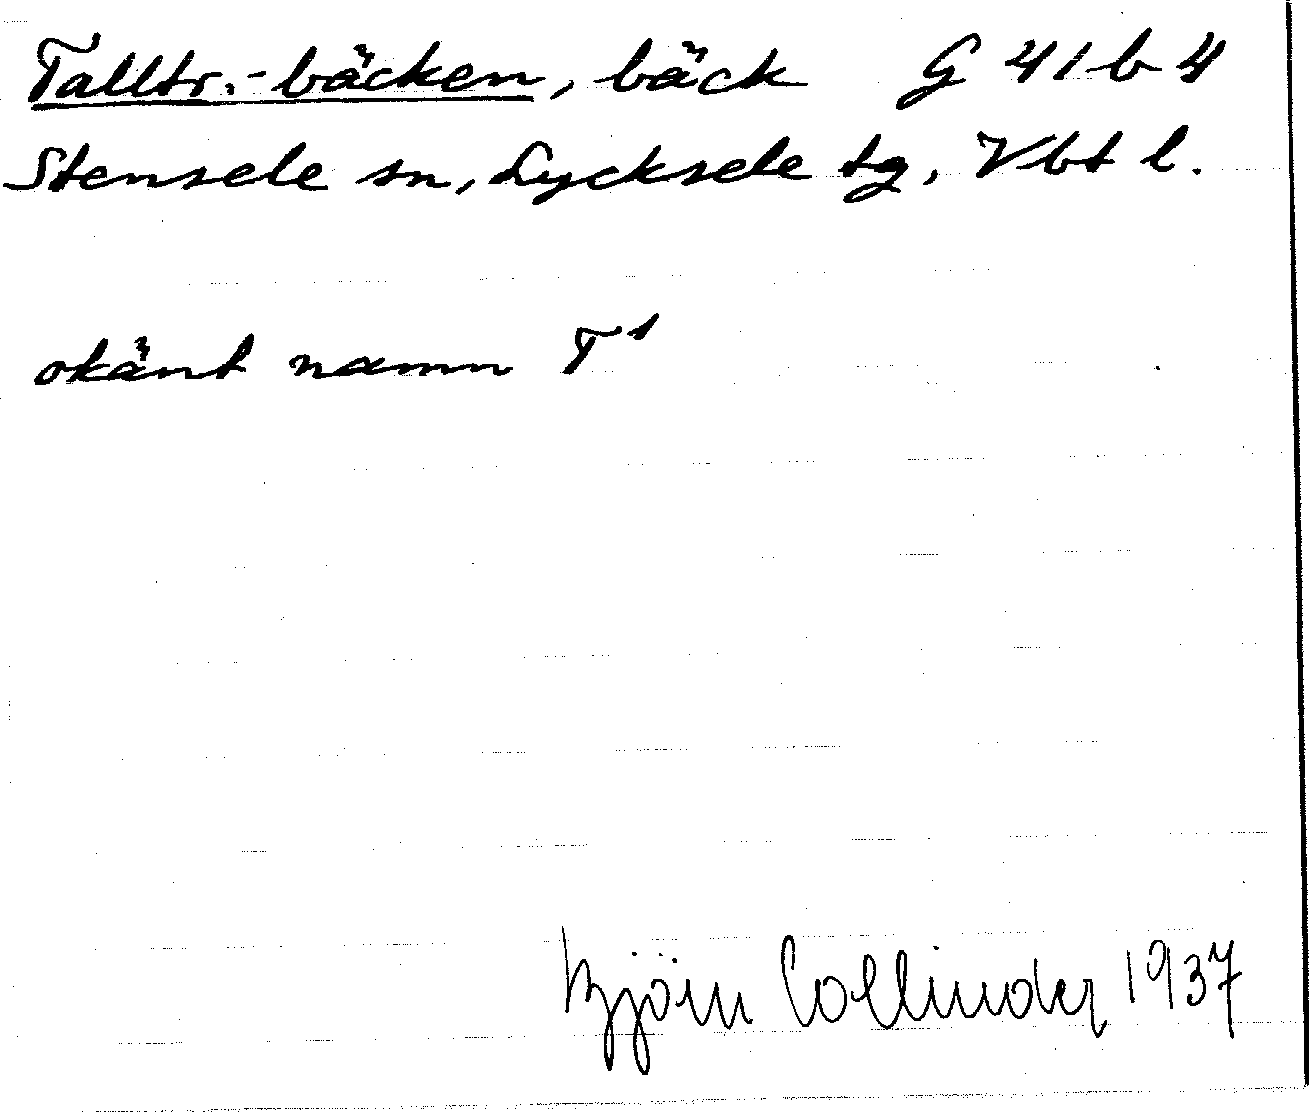 Talltr.-bäcken, bäck G 41 b 4
Stensele sn, Lycksele tg, Vbt l.
okänt namn T¹
Björn Collinder 1937